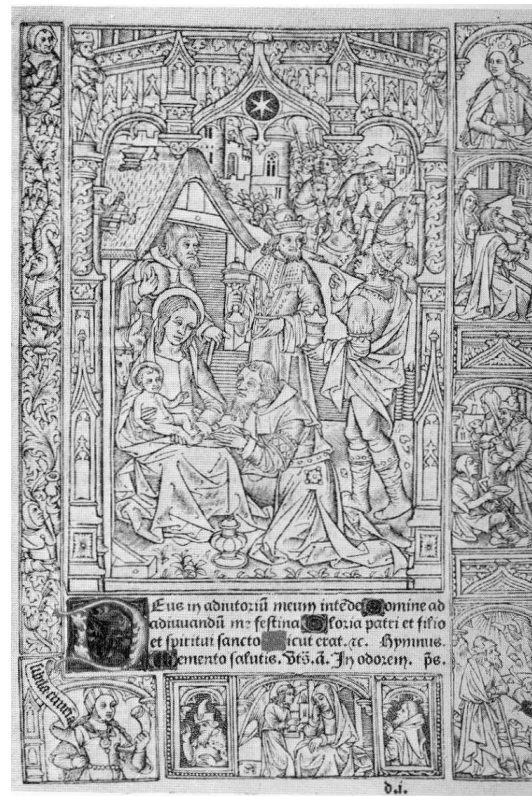 Deus in adiutoriū meum intēde Domine ad
adiuuandū me festina Gloria patri et filio
et spiritui sancto Sicut erat. ⁊c. Hymnus.
Memento salutis. Ūts. ā. In odorem. p̄s.
d.i.